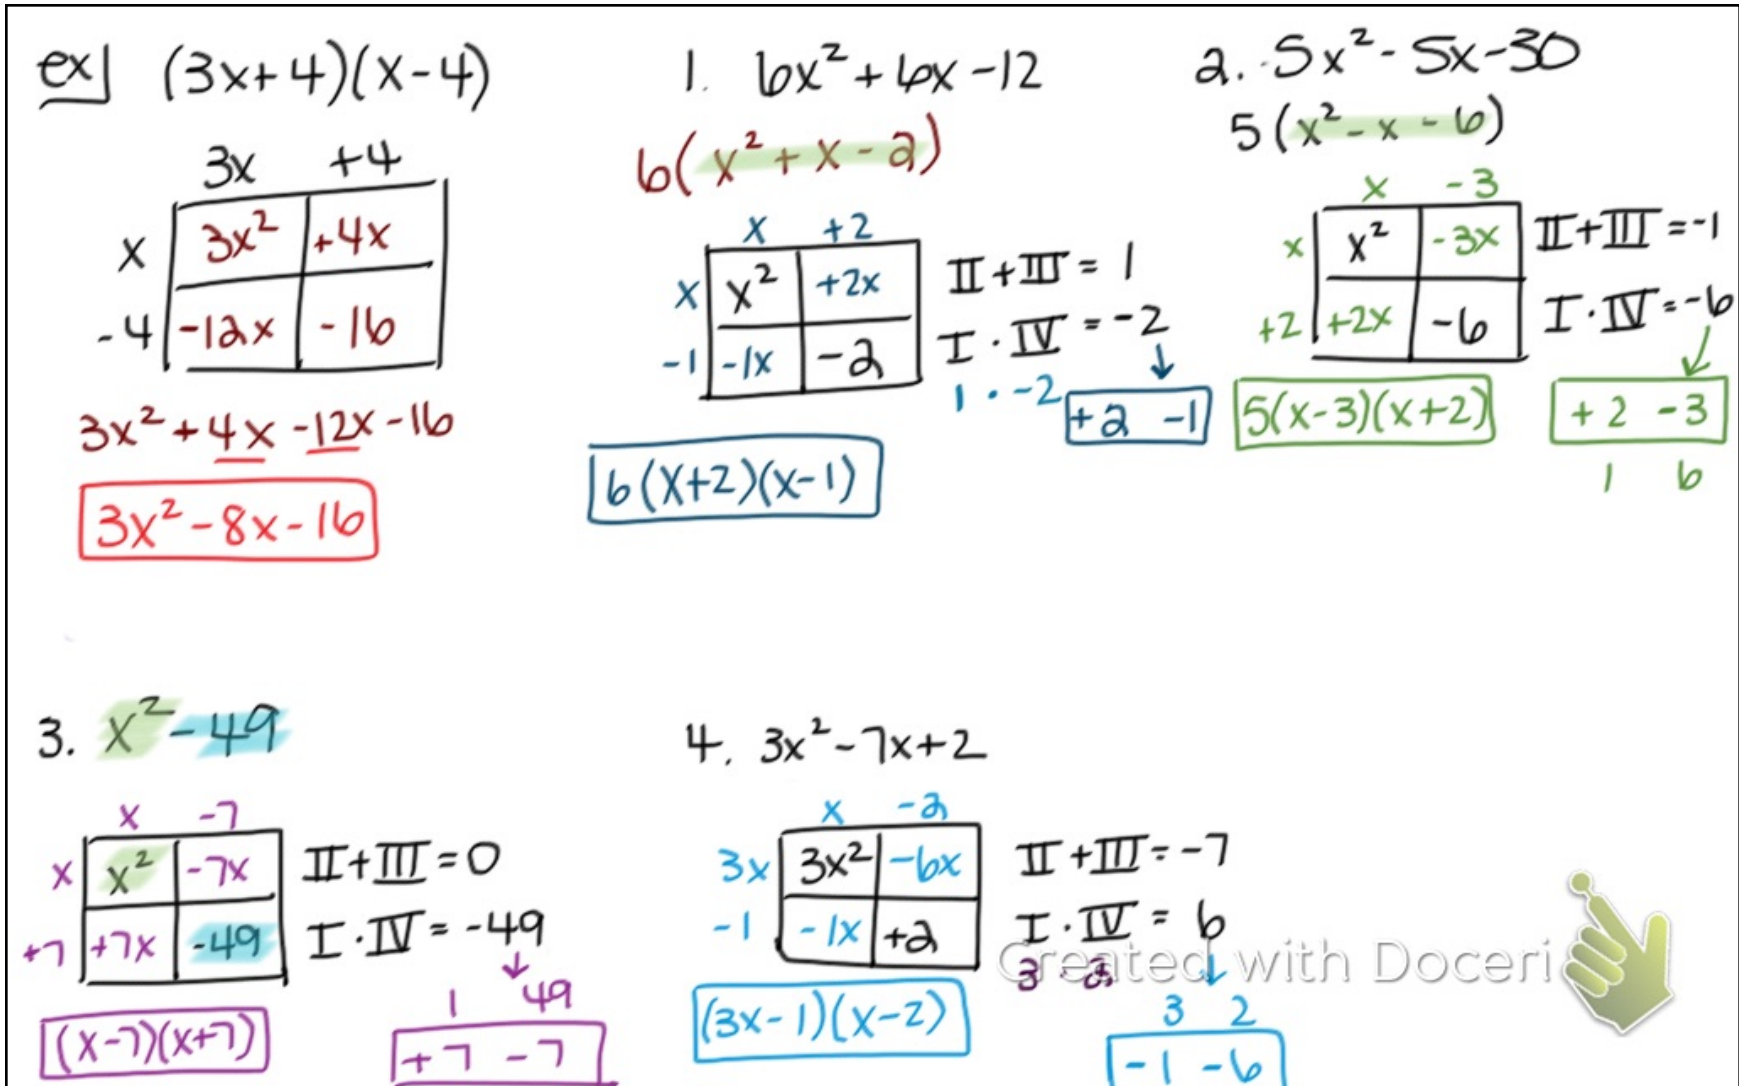 ex] (3x+4)(x-4)
3x +4
x 3x² +4x
-4 -12x -16
3x²+4x-12x-16
3x²-8x-16
1. 6x²+6x-12
6(x²+x-2)
x +2
x x² +2x
-1 -1x -2
II+III=1
I·IV=-2
1·-2
+2 -1
6(x+2)(x-1)
2. 5x²-5x-30
5(x²-x-6)
x -3
x x² -3x
+2 +2x -6
II+III=-1
I·IV=-6
5(x-3)(x+2)
+2 -3
1 6
3. x²-49
x -7
x x² -7x
+7 +7x -49
II+III=0
I·IV=-49
1 49
+7 -7
(x-7)(x+7)
4. 3x²-7x+2
x -2
3x 3x² -6x
-1 -1x +2
II+III=-7
I·IV=6
3·2
3 2
-1 -6
(3x-1)(x-2)
Created with Doceri